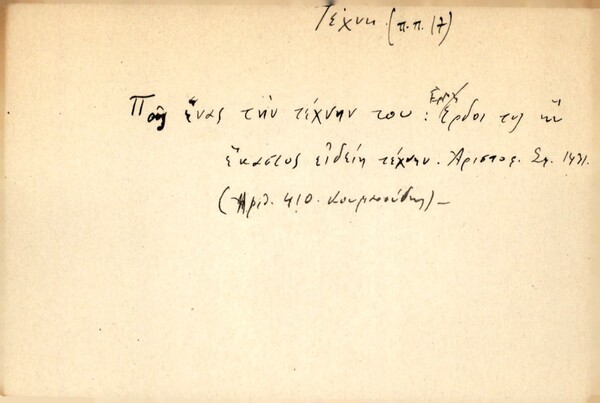 Τέχνη. (π.π. 17)
Πᾶς ἕνας τὴν τέχνην του: Ἔρδοι τις ἣν
ἕκαστος εἰδείη τέχνην. Ἀριστοφ. Σφ. 1431.
(Ἀριθ. 410. Κουμανούδης) —